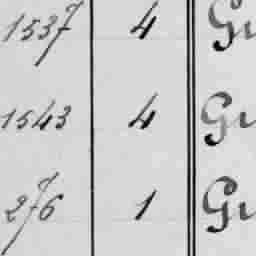 1537 4 Gu
1543 4 Gu
276 1 Gu